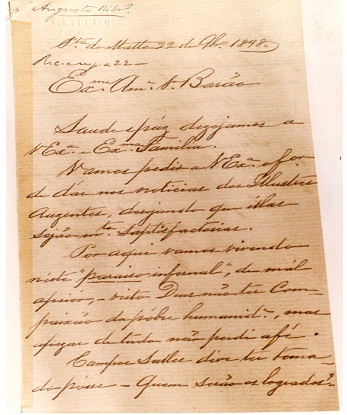 Augusto
Sta. de Matta 22 de 9bro 1898.
Exmo Amo Sr. Barão
Saude e paz dezejamos a
VExa e Exma Familia.
Vamos pedir a VExa o favor
de dár nos noticias dos Illustres
Auzentes, dezejando que ellas
sejão mto Satisfactorias.
Por aqui vamos vivendo
neste "paraiso infernal", de mál
apeior, - visto Deus não ter Com-
paixão da póbre humanide, mas
apezar de tudo não perdi a fé.
Campos Salles deve ter toma-
do pósse - Quem serão os logrados?